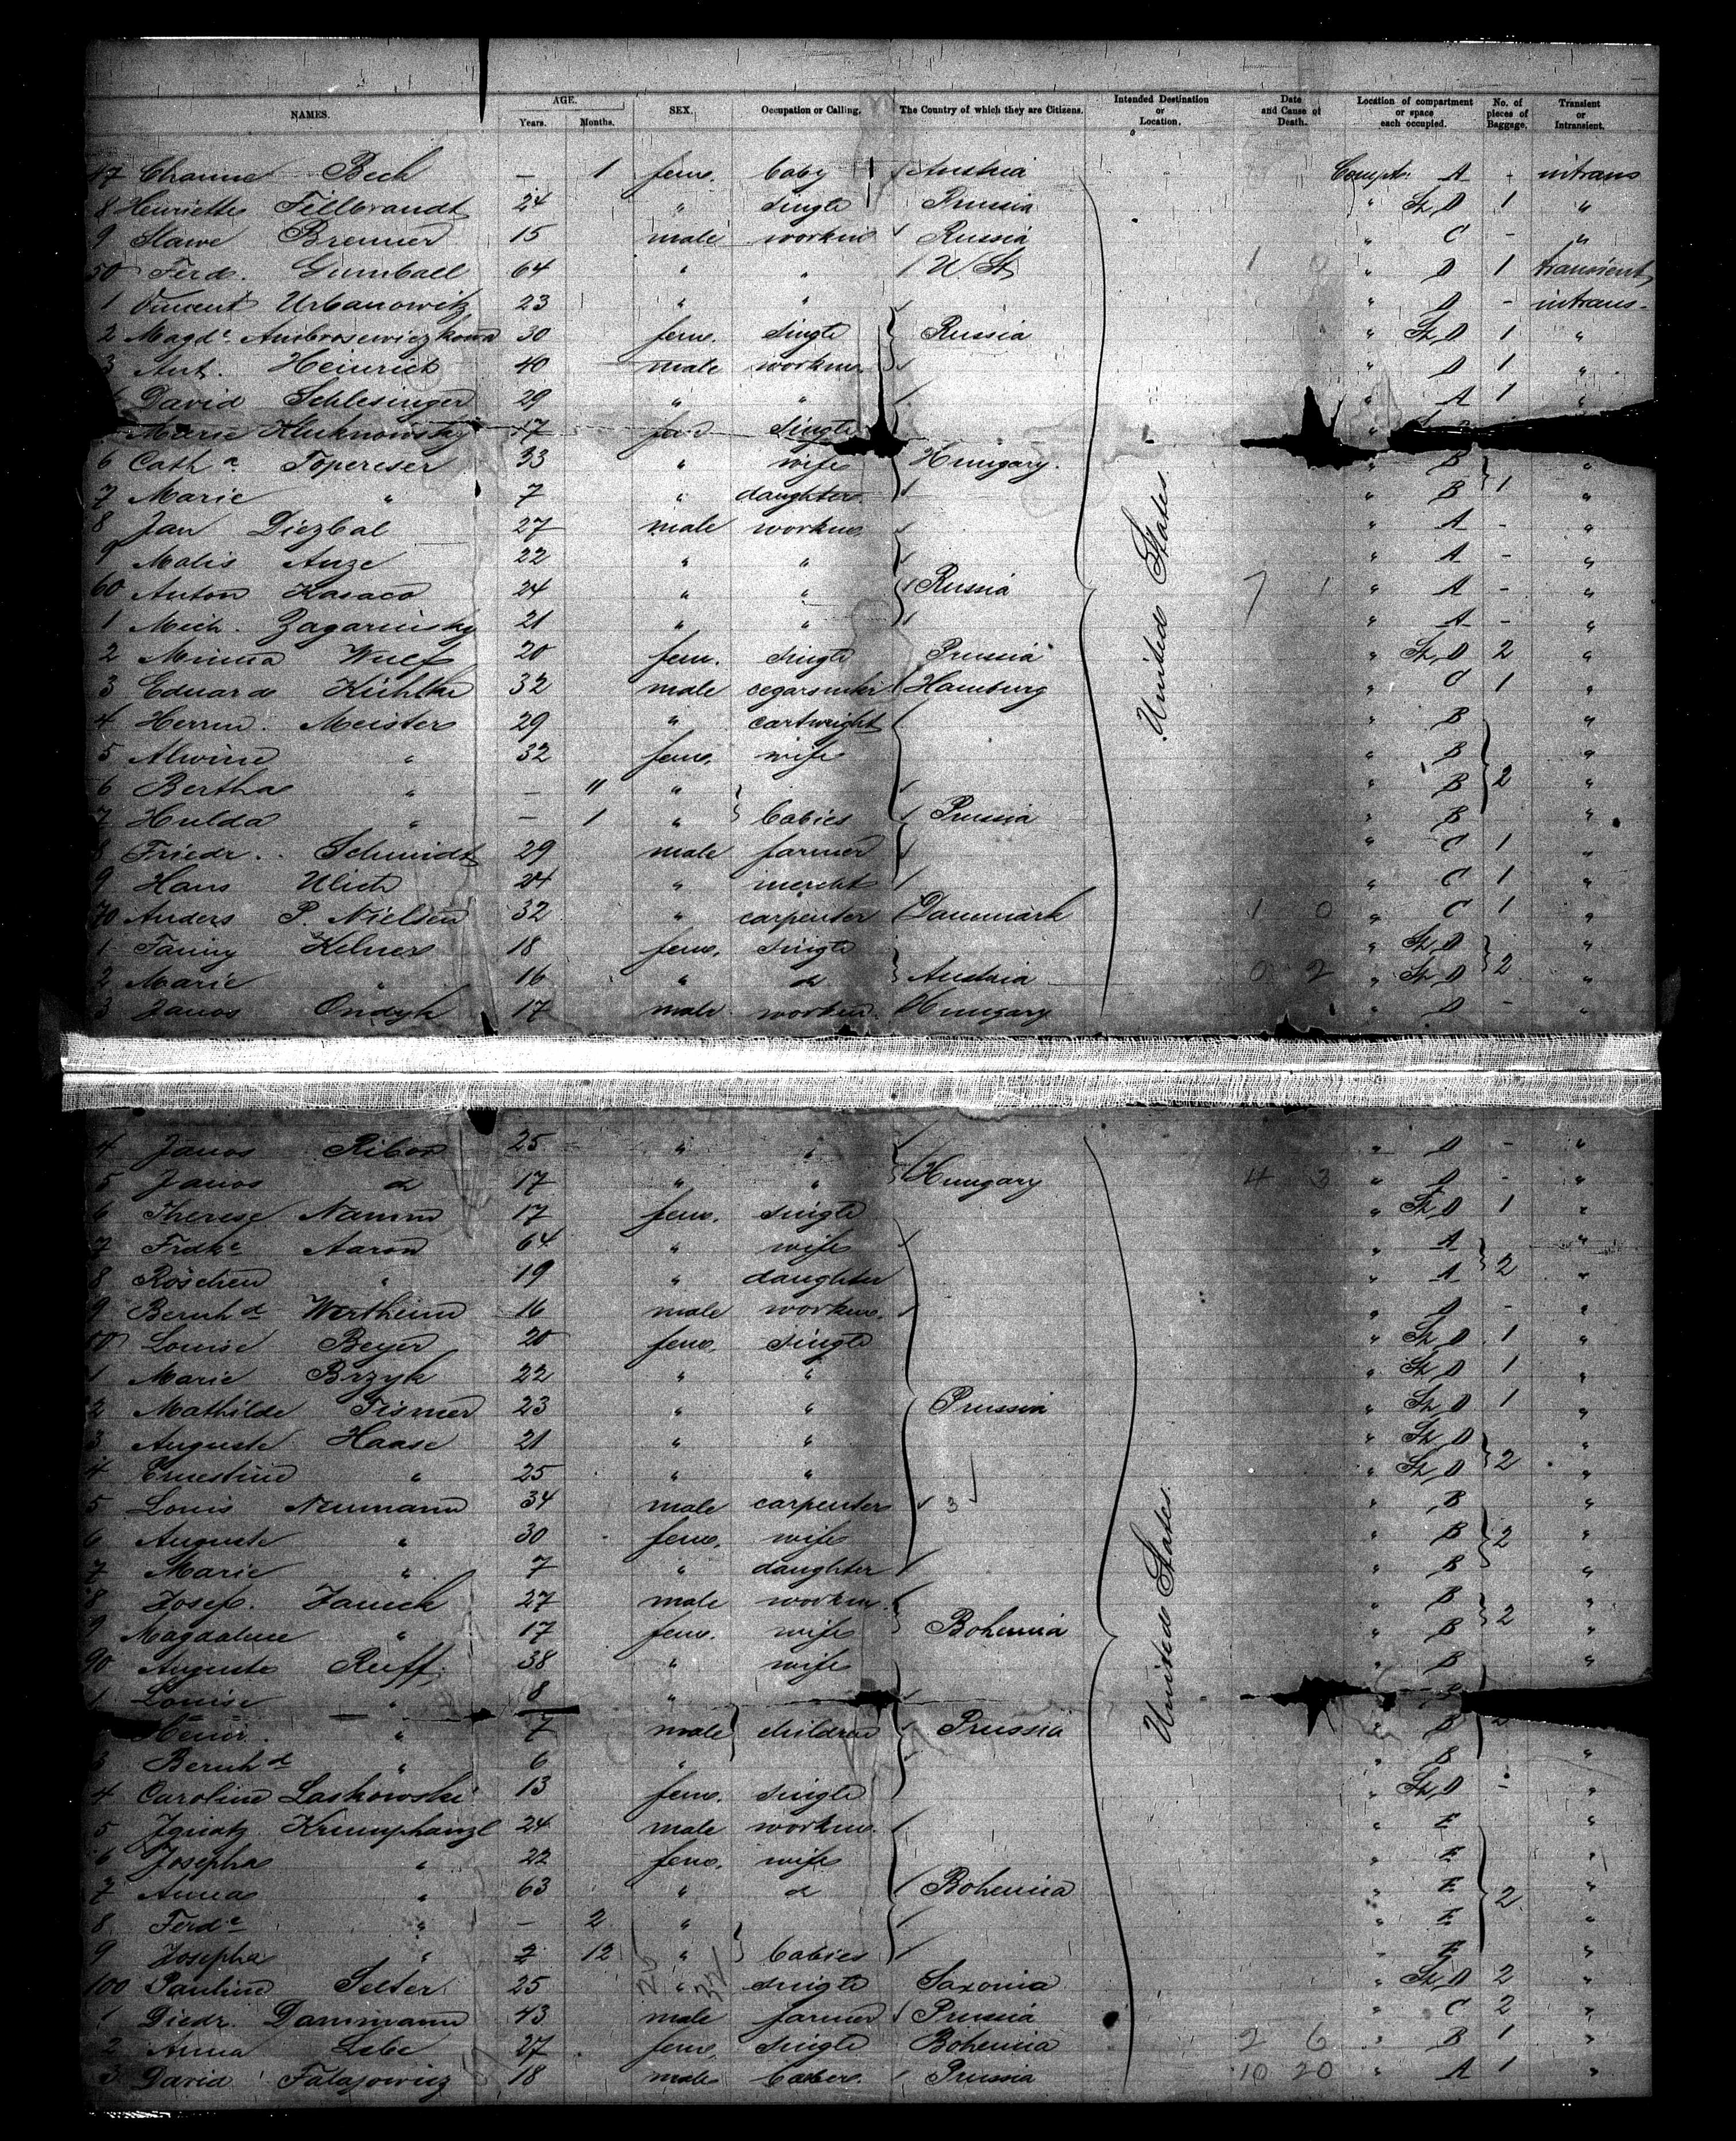 NAMES. AGE. Years. Months. SEX. Occupation or Calling. The Country of which they are Citizens. Intended Destination or Location. Date and Cause of Death. Location of compartment or space each occupied. No. of pieces of Baggage. Transient or Intransient.
47 Channe Bech — 1 fem. baby Austria Compt. A - intrans
8 Henriette Fillbrandt 24 " single Prussia " St. D 1 "
9 Slawe Brenner 15 male workm Russia " C - "
50 Ferd. Gumball 64 " " U St. 1 0 " D 1 transient
1 Vincent Urbanowitz 23 " " " D - intrans-
2 Magde Ambrosewiczkowa 30 fem. single Russia " St. D 1 "
3 Ant. Heinrich 40 male workm. " D 1 "
David Schlesinger 29 " " " A 1 "
Marie 17 single "
6 Cath a Topereser 33 " wife Hungary. " B "
7 Marie " 7 " daughter " B 1 "
8 Jan Diezbal 27 male workm. " A - "
9 Malis Anze 22 " " " A - "
60 Anton Kasaco 24 " " Russia 7 1 " A - "
1 Mich. Zagarinsky 21 " " " A - "
2 Minna Wulf 20 fem. single Prussia " St. D 2 "
3 Eduard 32 male Hamburg " C 1 "
4 Herm. Meister 29 " cartwright " B "
5 Alwine " 32 fem. wife " B "
6 Bertha " — 11 " " B 2 "
7 Hulda " — 1 " babies Prussia " B "
8 Friedr. Schmidt 29 male farmer " C 1 "
9 Hans Ulich 24 " mercht " C 1 "
70 Anders P. Nielsen 32 " carpenter Danmark 1 0 " C 1 "
1 Fanny Kelner 18 fem. single " St. D "
2 Marie " 16 " do Austria 0 2 " St. D 2 "
3 Janos Ondyk 17 male workm. Hungary " D - "
United States.
4 Janos Ribon 25 " " " D - "
5 Janos do 17 " " Hungary 4 3 " D - "
6 Therese Namm 17 fem. single " St. D 1 "
7 Frdke Aaron 64 " wife " A "
8 Röschen " 19 " daughter " A 2 "
9 Bernhd Wertheim 16 male workm. " D - "
80 Louise Beyer 20 fem. single " St. D 1 "
1 Marie Brzyk 22 " " " St. D 1 "
2 Mathilde Fismer 23 " " Prussia " St. D 1 "
3 Auguste Haase 21 " " " St. D "
4 Ernestine " 25 " " " St. D 2 "
5 Louis Neumann 34 male carpenter 3 " B "
6 Auguste " 30 fem. wife " B 2 "
7 Marie " 7 " daughter " B "
8 Josef. Janech 27 male workm. " B "
9 Magdalene " 17 fem. wife Bohemia " B 2 "
90 Auguste Reiff. 38 " wife " B "
1 Louise " 8 "
Heinr. " 7 male children Prussia " B 2
3 Bernhd " 6 " " B "
4 Caroline Laskowski 13 fem. single " St. D - "
5 Ignatz Krumphanzl 24 male workm. " E "
6 Josepha " 22 fem. wife " E "
7 Anna " 63 " do Bohemia " E 2 "
8 Ferde " — 2 " " E "
9 Josepha " 2 12 " babies " E "
100 Pauline Selter 25 " single Saxonia " St. D 2 "
1 Diedr. Dammann 43 male farmer Prussia " C 2 "
2 Anna Lebe 27 fem. single Bohemia 2 6 " B 1 "
3 David 18 male Prussia 10 20 " A 1 "
United States.